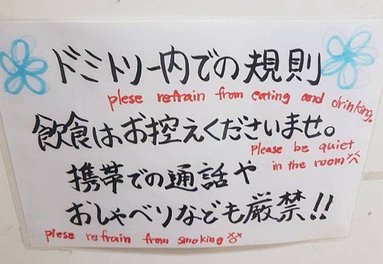 ドミトリー内での規則
plese refrain from eating and drinking.
飲食はお控えくださいませ。
Please be quiet
in the room
携帯での通話や
おしゃべりなども厳禁!!
plese refrain from smoking